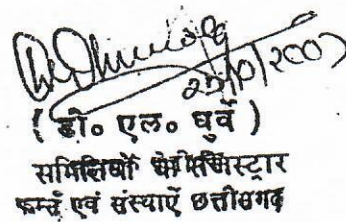 25/10/2007
( डी० एल० धुर्वे )
समितियों के रजिस्ट्रार
फर्म्स एवं संस्थाएँ छत्तीसगढ़